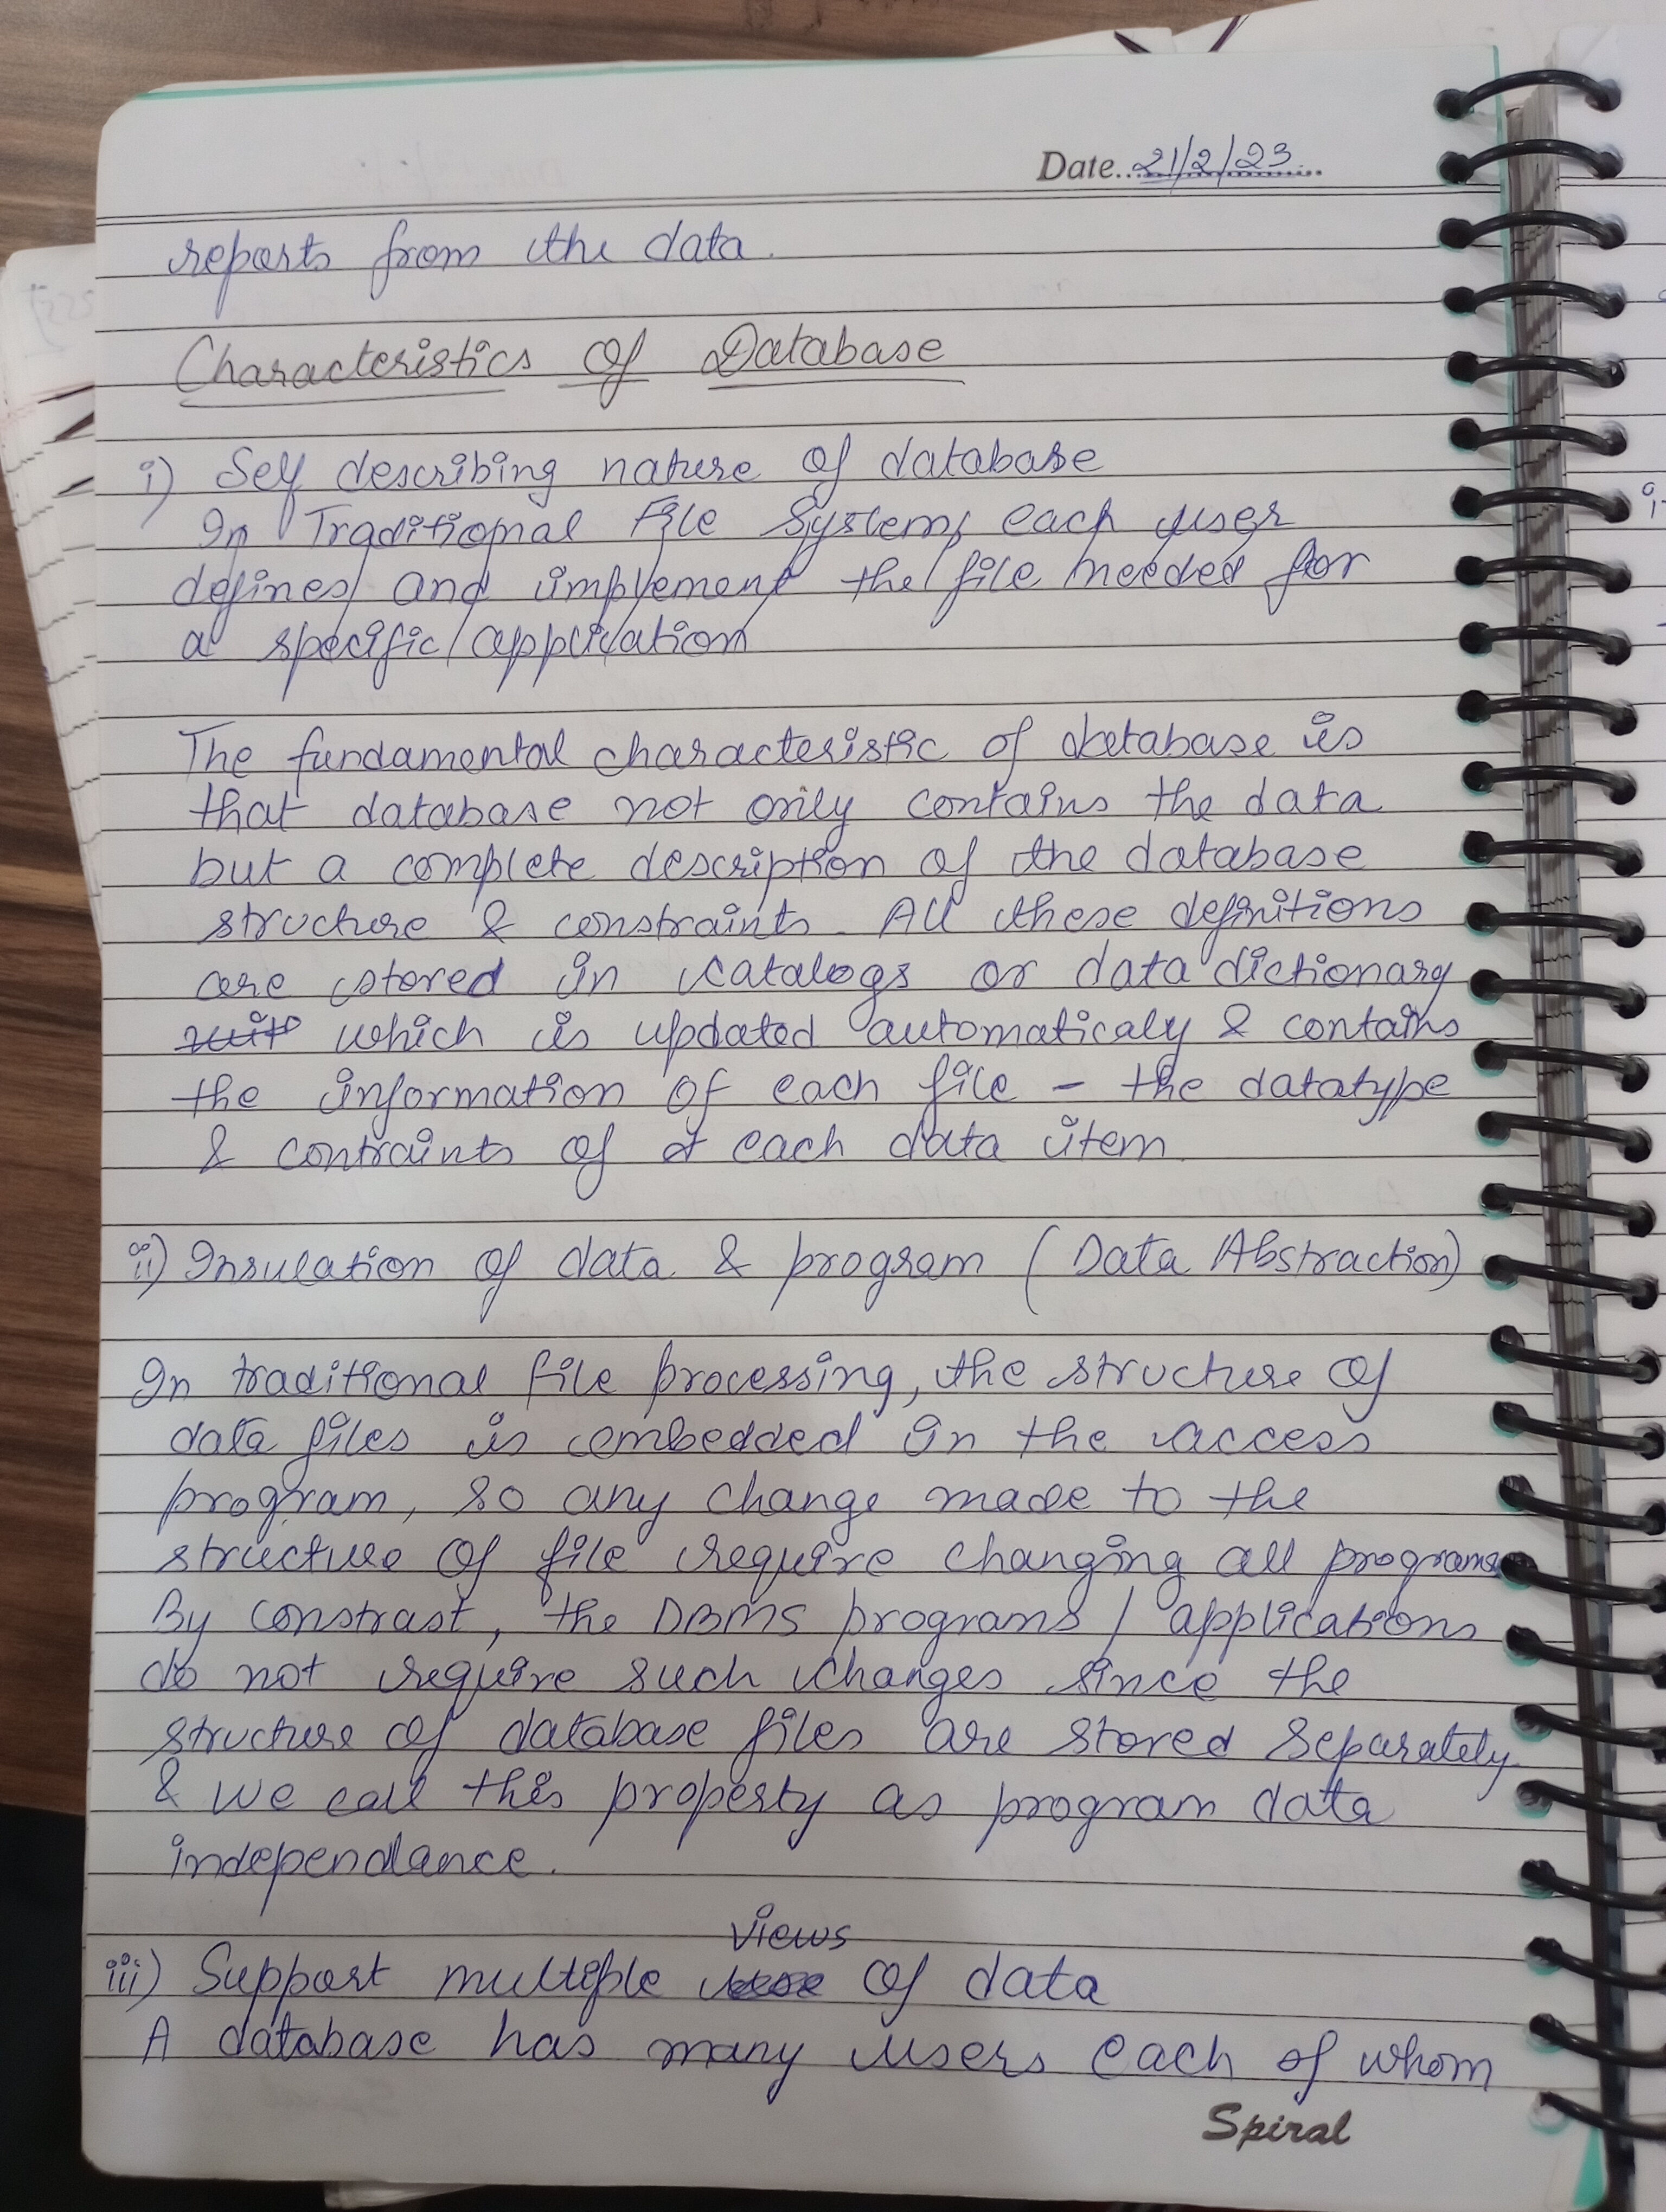 Date..21/2/23...
reports from the data.
Characteristics Of Database
i) Self describing nature of database
In Traditional File System, each user
defines and implement the file needed for
a specific application
The fundamental characteristic of database is
that database not only contains the data
but a complete description of the database
structure & constraints. All these definitions
are stored in catalogs or data dictionary
which is updated automaticaly & contains
the information of each file - the datatype
& contraints of each data item
ii) Insulation of data & program (Data Abstraction)
In traditional file processing, the structure of
data files is embedded in the access
program, so any change made to the
structure of file require changing all programs
By constrast, the DBMS programs / applications
do not require such changes since the
structure of database files are stored separately
& we call this property as program data
independance.
iii) Support multiple views of data
A database has many users each of whom
Spiral